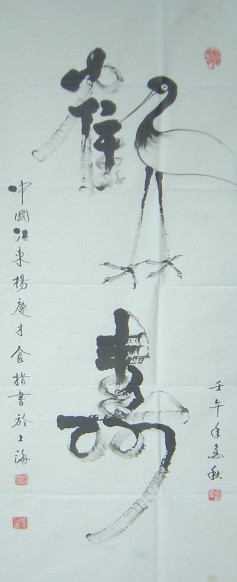 鶴寿
壬午年金秋
中國江東楊慶才食指書於上海